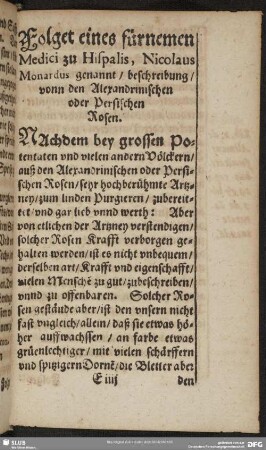 Folget eines fürnemen
Medici zu Hispalis, Nicolaus
Monardus genannt / beschreibung /
vonn den Alexandrinischen
oder Persischen
Rosen.
NAchdem bey grossen Po-
tentaten vnd vielen andern Völckern /
auß den Alexandrinischen oder Persi-
schen Rosen / sehr hochberühmte Artz-
ney / zum linden Purgieren / zubereit-
tet vnd gar lieb vnnd werth: Aber
von etlichen der Artzney verstendigen /
solcher Rosen Krafft verborgen ge-
halten werden / ist es nicht vnbequem /
derselben art / Krafft vnd eigenschafft /
vielen Menschē zu gut / zubeschreiben /
vnnd zu offenbaren. Solcher Ro-
sen gestäude aber / ist den vnsern nicht
fast vngleich / allein / daß sie etwas hö-
her auffwachssen / an farbe etwas
grüenlechtiger / mit vielen schärffern
vnd spitzigern Dornē / die Bletter aber
E iiij den
SLUB
DFG